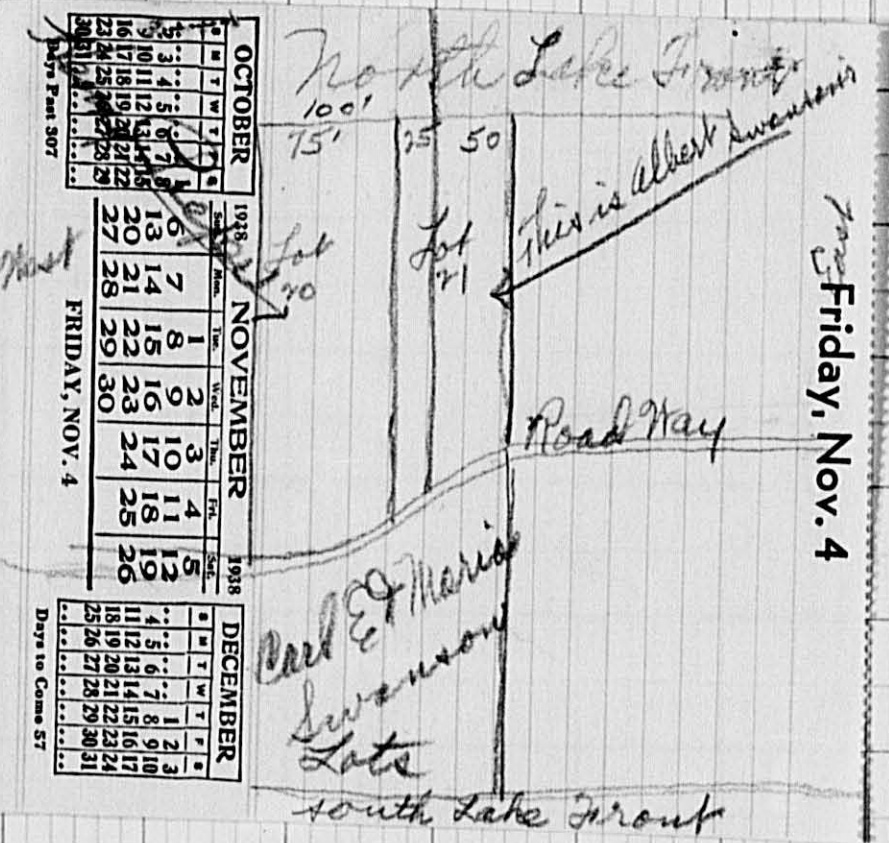 North Lake Front
100'
75'
25
50
This is Albert Swanson's
Lot
20
Lot
21
West
Road Way
Carl E & Maria
Swanson
Lots
South Lake Front
Friday, Nov. 4
OCTOBER
S M T W T F S
1
2 3 4 5 6 7 8
9 10 11 12 13 14 15
16 17 18 19 20 21 22
23 24 25 26 27 28 29
30 31
Days Past 307
1938 NOVEMBER 1938
Sun. Mon. Tue. Wed. Thu. Fri. Sat.
1 2 3 4 5
6 7 8 9 10 11 12
13 14 15 16 17 18 19
20 21 22 23 24 25 26
27 28 29 30
FRIDAY, NOV. 4
DECEMBER
S M T W T F S
1 2 3
4 5 6 7 8 9 10
11 12 13 14 15 16 17
18 19 20 21 22 23 24
25 26 27 28 29 30 31
Days to Come 57